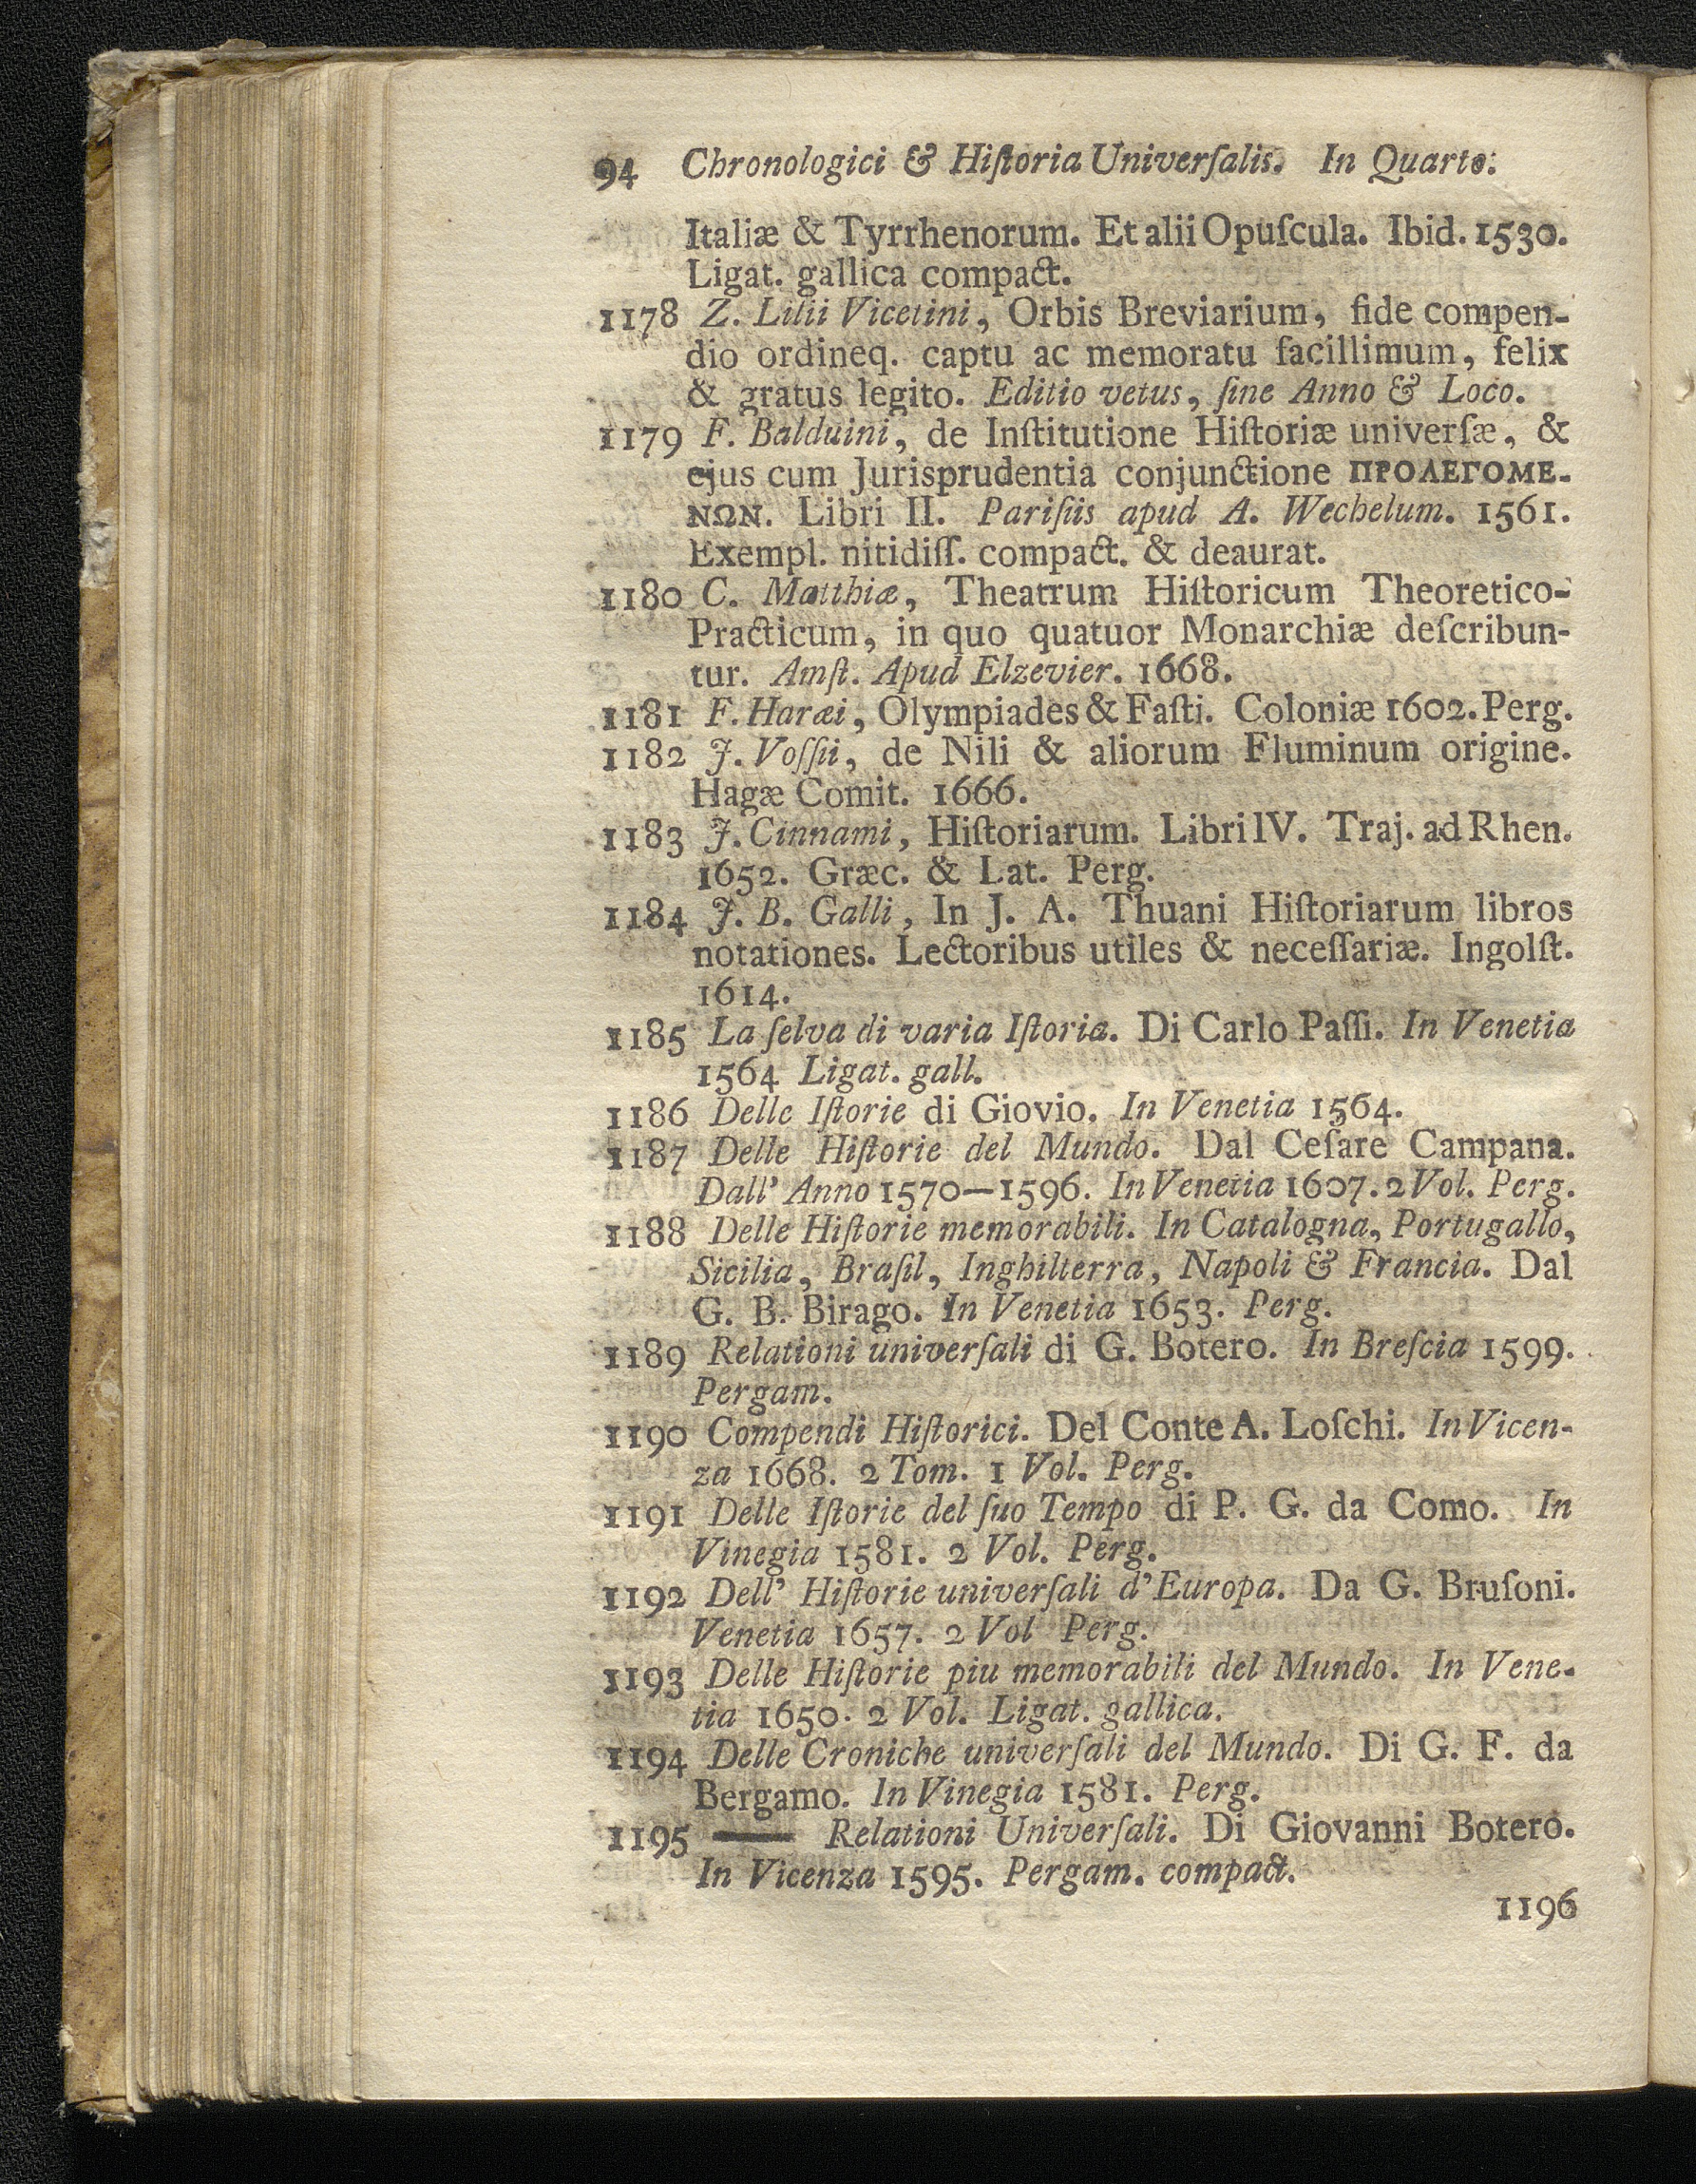 94 Chronologici & Hiſtoria Univerſalis. In Quarto.
Italiæ & Tyrrhenorum. Et alii Opuſcula. Ibid. 1530.
Ligat. gallica compact.
1178 Z. Lilii Vicetini, Orbis Breviarium, fide compen-
dio ordineq. captu ac memoratu facillimum, felix
& gratus legito. Editio vetus, ſine Anno & Loco.
1179 F. Balduini, de Inſtitutione Hiſtoriæ univerſæ, &
ejus cum Jurisprudentia conjunctione ΠΡΟΛΕΓΟΜΕ-
ΝΩΝ. Libri II. Pariſiis apud A. Wechelum. 1561.
Exempl. nitidiſſ. compact. & deaurat.
1180 C. Matthiæ, Theatrum Hiſtoricum Theoretico-
Practicum, in quo quatuor Monarchiæ deſcribun-
tur. Amſt. Apud Elzevier. 1668.
1181 F. Haræi, Olympiades & Faſti. Coloniæ 1602. Perg.
1182 J. Voſſii, de Nili & aliorum Fluminum origine.
Hagæ Comit. 1666.
1183 J. Cinnami, Hiſtoriarum. Libri IV. Traj. ad Rhen.
1652. Græc. & Lat. Perg.
1184 J. B. Galli, In J. A. Thuani Hiſtoriarum libros
notationes. Lectoribus utiles & neceſſariæ. Ingolſt.
1614.
1185 La ſelva di varia Iſtoria. Di Carlo Paſſi. In Venetia
1564 Ligat. gall.
1186 Delle Iſtorie di Giovio. In Venetia 1564.
1187 Delle Hiſtorie del Mundo. Dal Ceſare Campana.
Dall' Anno 1570—1596. In Venetia 1607. 2 Vol. Perg.
1188 Delle Hiſtorie memorabili. In Catalogna, Portugallo,
Sicilia, Braſil, Inghilterra, Napoli & Francia. Dal
G. B. Birago. In Venetia 1653. Perg.
1189 Relationi univerſali di G. Botero. In Breſcia 1599.
Pergam.
1190 Compendi Hiſtorici. Del Conte A. Loſchi. In Vicen-
za 1668. 2 Tom. 1 Vol. Perg.
1191 Delle Iſtorie del ſuo Tempo di P. G. da Como. In
Vinegia 1581. 2 Vol. Perg.
1192 Dell' Hiſtorie univerſali d'Europa. Da G. Bruſoni.
Venetia 1657. 2 Vol Perg.
1193 Delle Hiſtorie piu memorabili del Mundo. In Vene-
tia 1650. 2 Vol. Ligat. gallica.
1194 Delle Croniche univerſali del Mundo. Di G. F. da
Bergamo. In Vinegia 1581. Perg.
1195 —— Relationi Univerſali. Di Giovanni Botero.
In Vicenza 1595. Pergam. compact.
1196